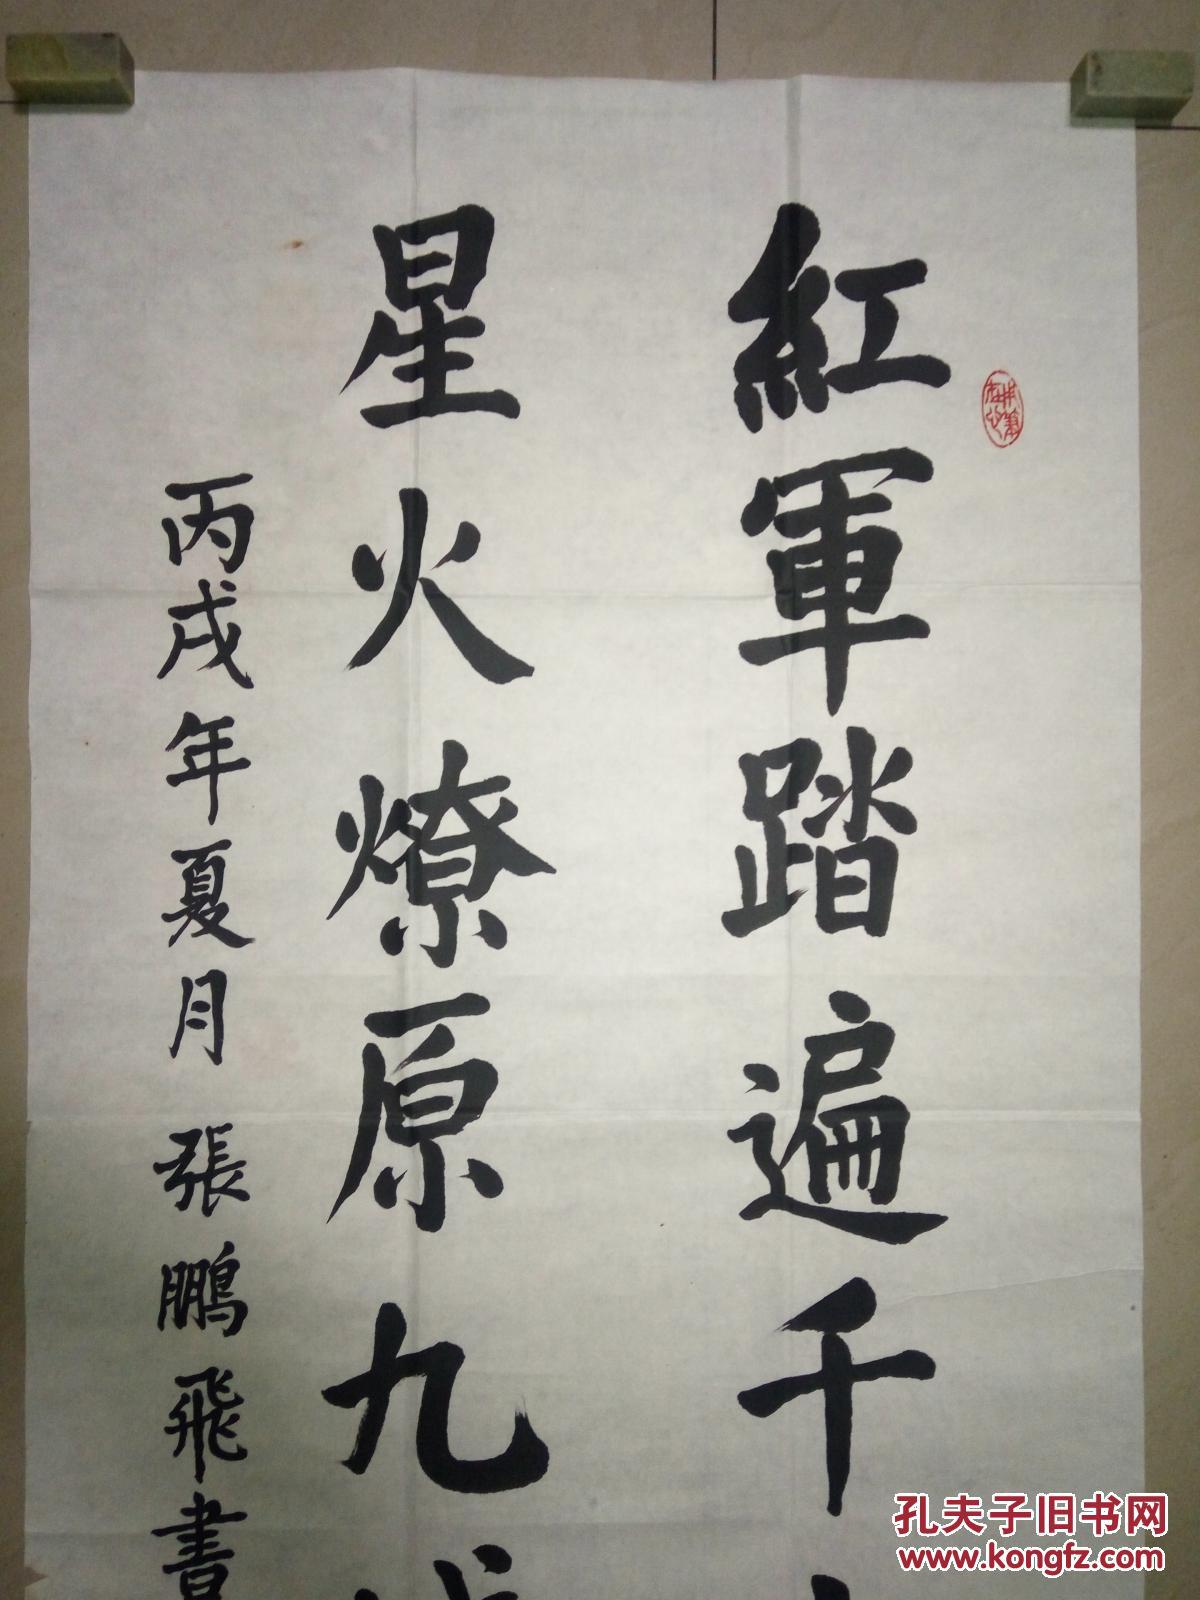 紅軍踏遍千
星火燎原九
丙戌年夏月 張鵬飛書
孔夫子旧书网
www.kongfz.com